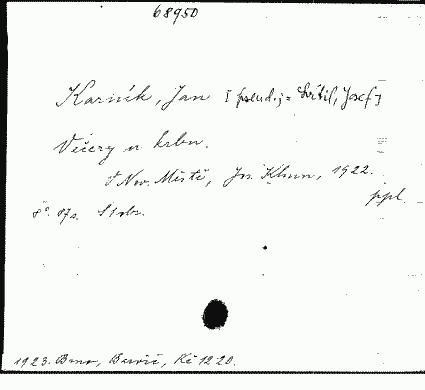 68950
Karník, Jan [pseud.; = Svítil, Josef]
Večery u krbu.
V Nov. Městě, Jos. Klum, 1922.
ppl.
8°. 87 s. 1 obr.
1923. Brno, Barvič, Kč 12 20.